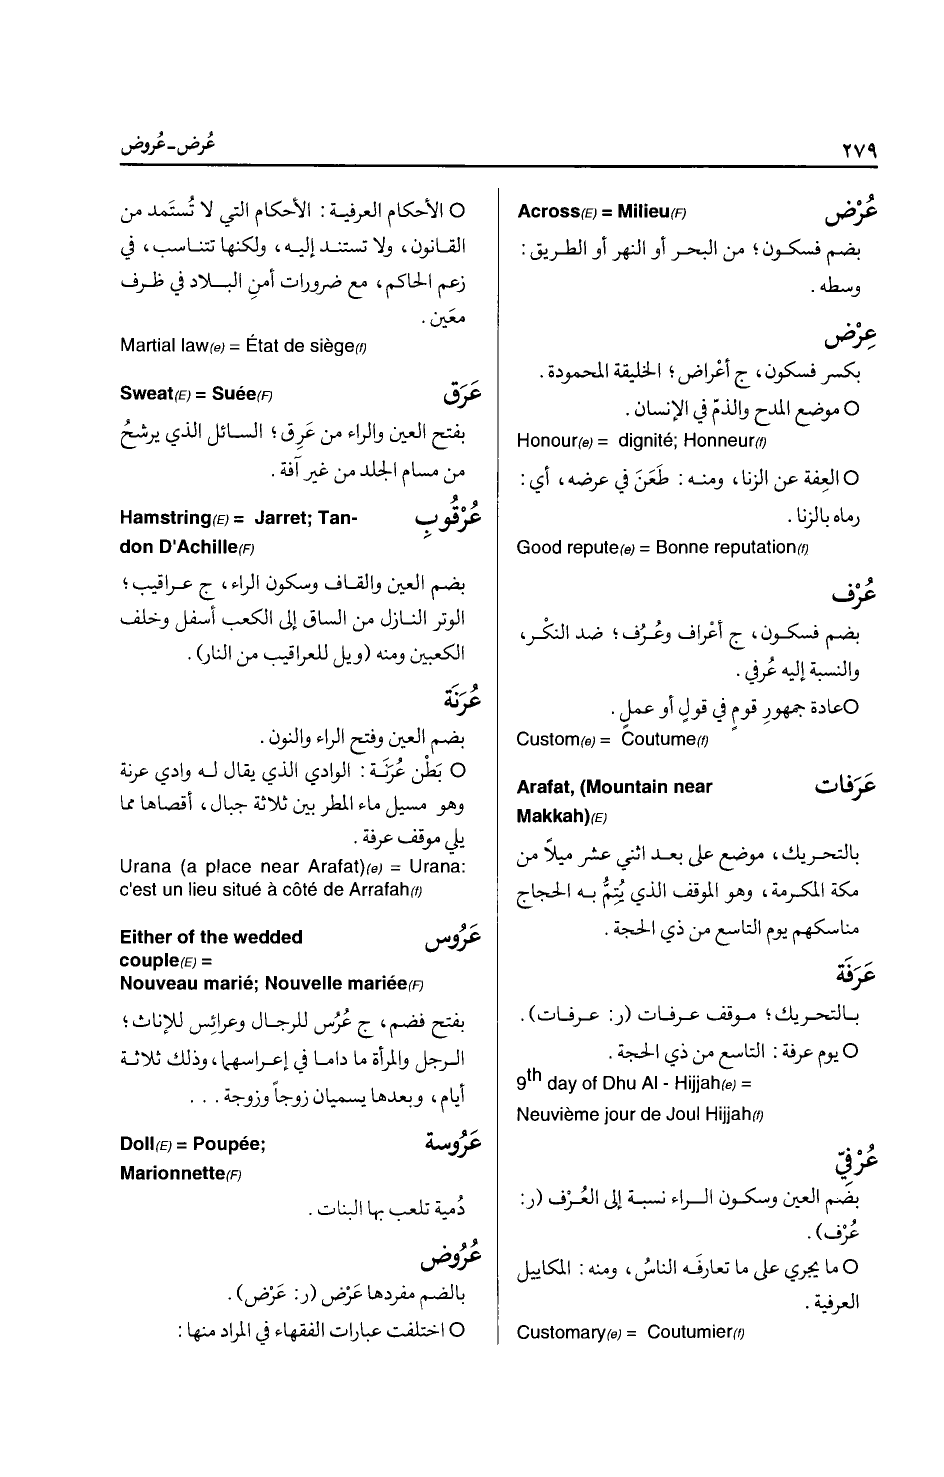 ٢٧٩
عُرض-عُروض
عُرْض Across(E) = Milieu(F)
بضم فسكون؛ من البحر أو النهر أو الطريق:
وسطه.
عِرْض
بكسر فسكون، ج أعْراض؛ الخليقة المحمودة.
○ موضع المدح والذمّ في الإنسان.
Honour(e) = dignité; Honneur(f)
○ العِفة عن الزنا، ومنه: طَعَنَ في عرضه، أي:
رماه بالزنا.
Good repute(e) = Bonne reputation(f)
عُرْف
بضم فسكون، ج أعْراف وعُرُف؛ ضد النكْر،
والنسبة إليه عُرفي.
○عادة جمهورِ قومٍ في قولٍ أو عملٍ.
Custom(e) = Coutume(f)
عَرَفات Arafat, (Mountain near
Makkah)(E)
بالتحريك، موضع على بعد اثني عشر ميلاً من
مكة المكرمة، وهو الموقف الذي يُتِمُّ به الحجاج
مناسكهم يوم التاسع من ذي الحجة.
عَرَفَة
بالتحريك؛ موقف عرفات (ر: عرفات).
○ يوم عرفة: التاسع من ذي الحجة.
9th day of Dhu Al - Hijjah(e) =
Neuvième jour de Joul Hijjah(f)
عُرْفيّ
بضَم العين وسكون الراء نسبة إلى العُرْف (ر:
عُرْف).
○ ما يجري على ما تعارفَه الناسُ، ومنه: المكاييل
العرفية.
Customary(e) = Coutumier(f)
○ الأحكام العرفية: الأحكام التي لا تُستَمد من
القانون، ولا تستند إليه، ولكنها تتناسب، في
زعم الحاكم، مع ضرورات أمنِ البلاد في ظرف
معَين.
Martial law(e) = État de siège(f)
عَرَق Sweat(E) = Suée(F)
بفتح العين والراء من عَرِق؛ السائل الذي يرشحُ
من مسام الجلد من غير آفة.
عُرْقُوب Hamstring(E) = Jarret; Tan-
don D'Achille(F)
بضم العين والقاف وسكون الراء، ج عراقيب؛
الوتر النازل من الساق إلى الكعب أسفل وخلف
الكعبين ومنه (ويل للعراقيب من النار).
عُرَنَة
بضم العين وفتح الراء والنون.
○ بَطْن عُرَنَة: الوادي الذي يقال له وادي عرنة
وهو مسيل ماء المطر بين ثلاثة جبال، أقصاها مما
يلي موقف عرفة.
Urana (a place near Arafat)(e) = Urana:
c'est un lieu situé à côté de Arrafah(f)
عَرُوس Either of the wedded
couple(E) =
Nouveau marié; Nouvelle mariée(F)
بفتح فضم، ج عُرُس للرجال وعرائِس للإناث؛
الرجل والمرأة ما داما في إعراسهما، وذلك ثلاثة
أيام، وبعدها يسميان زوجاً وزوجة...
عَرُوسة Doll(E) = Poupée;
Marionnette(F)
دُمية تلعب بها البنات.
عُرُوض
بالضم مفردها عَرْض (ر: عَرْض).
○ اختلفت عبارات الفقهاء في المراد منها: